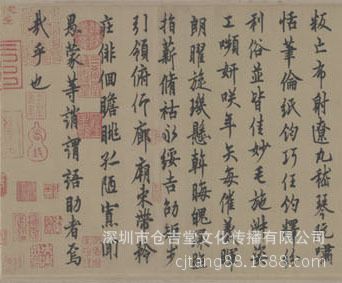 叛亡布射遼丸嵇琴阮嘯
恬筆倫紙鈞巧任釣釋
利俗並皆佳妙毛施淑姿
工嚬妍咲年矢每催羲暉
朗曜旋璣懸斡晦魄環
指薪脩祜永綏吉劭矩步
引領俯仰廊廟束帶矜
莊俳佪瞻眺孤陋寡聞
愚蒙等誚謂語助者焉
哉乎也
深圳市仓吉堂文化传播有限公司
cjtang88.1688.com